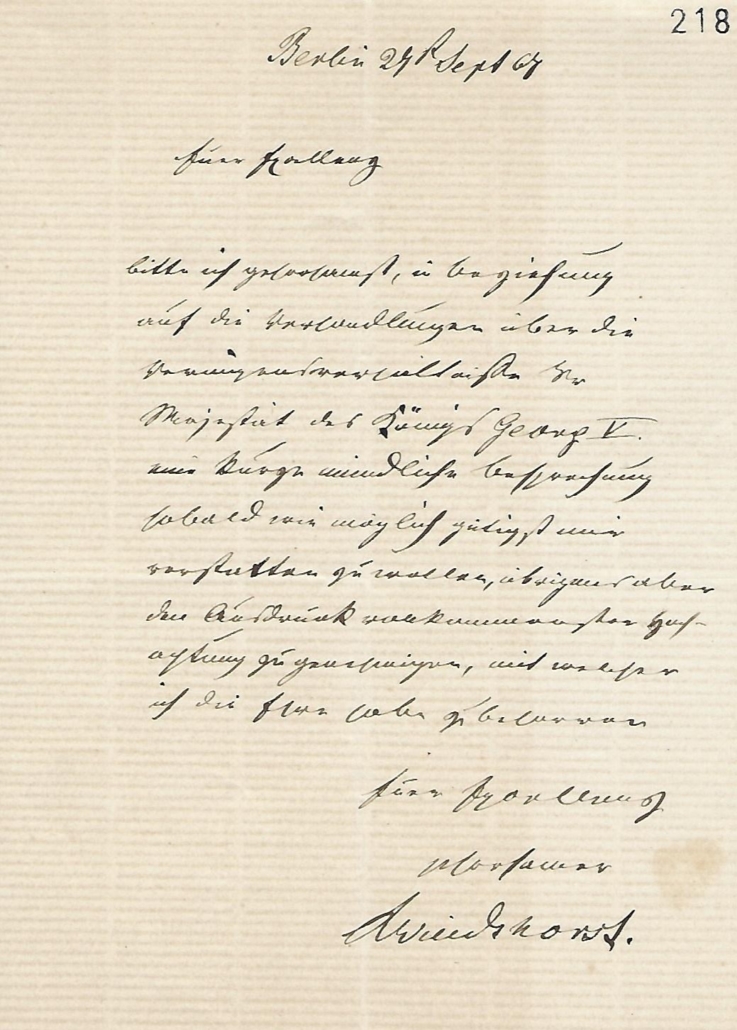 218
Berlin 27t Sept 67
Euer Excellenz
bitte ich gehorsamst, in Beziehung
auf die Verhandlungen über die
Vermögensverhältnisse Sr
Majestät des Königs Georg V.
eine kurze mündliche Besprechung
sobald wie möglich gütigst mir
verstatten zu wollen, übrigens aber
den Ausdruck vollkommenster Hoch-
achtung zu genehmigen, mit welcher
ich die Ehre habe zu beharren
Euer Excellenz
gehorsamer
Windthorst.